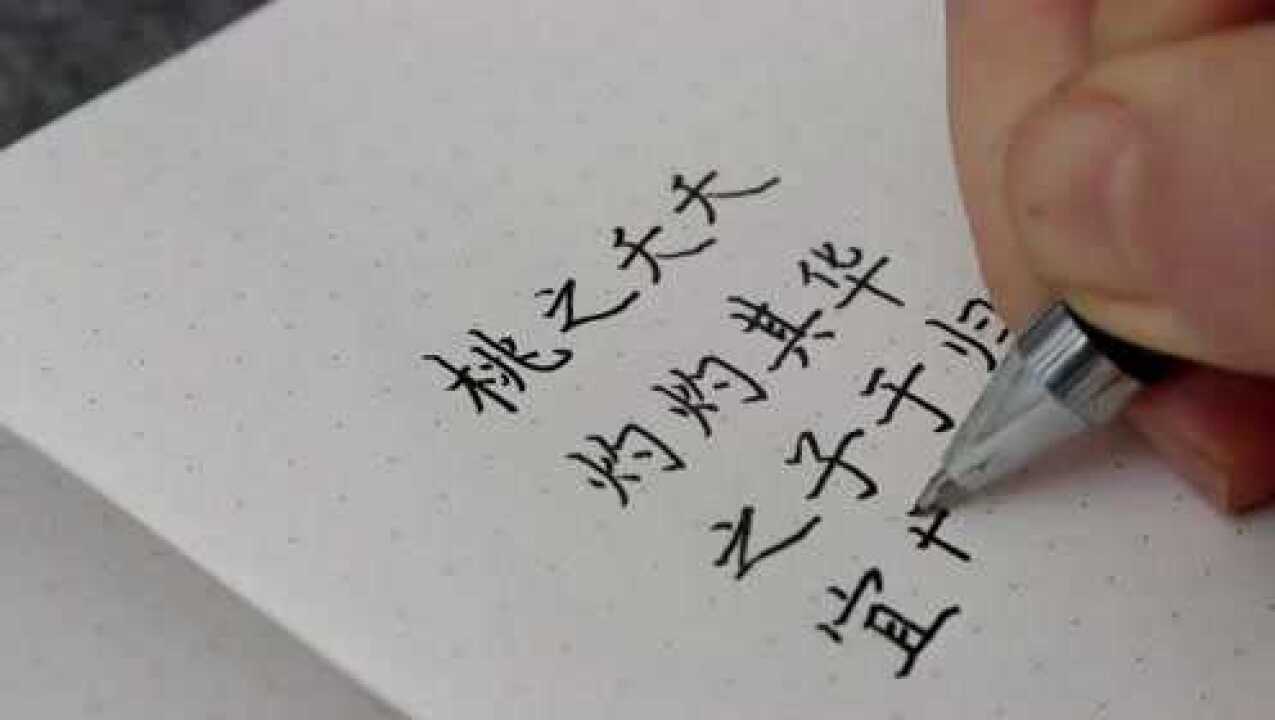 桃之夭夭
灼灼其华
之子于归
宜